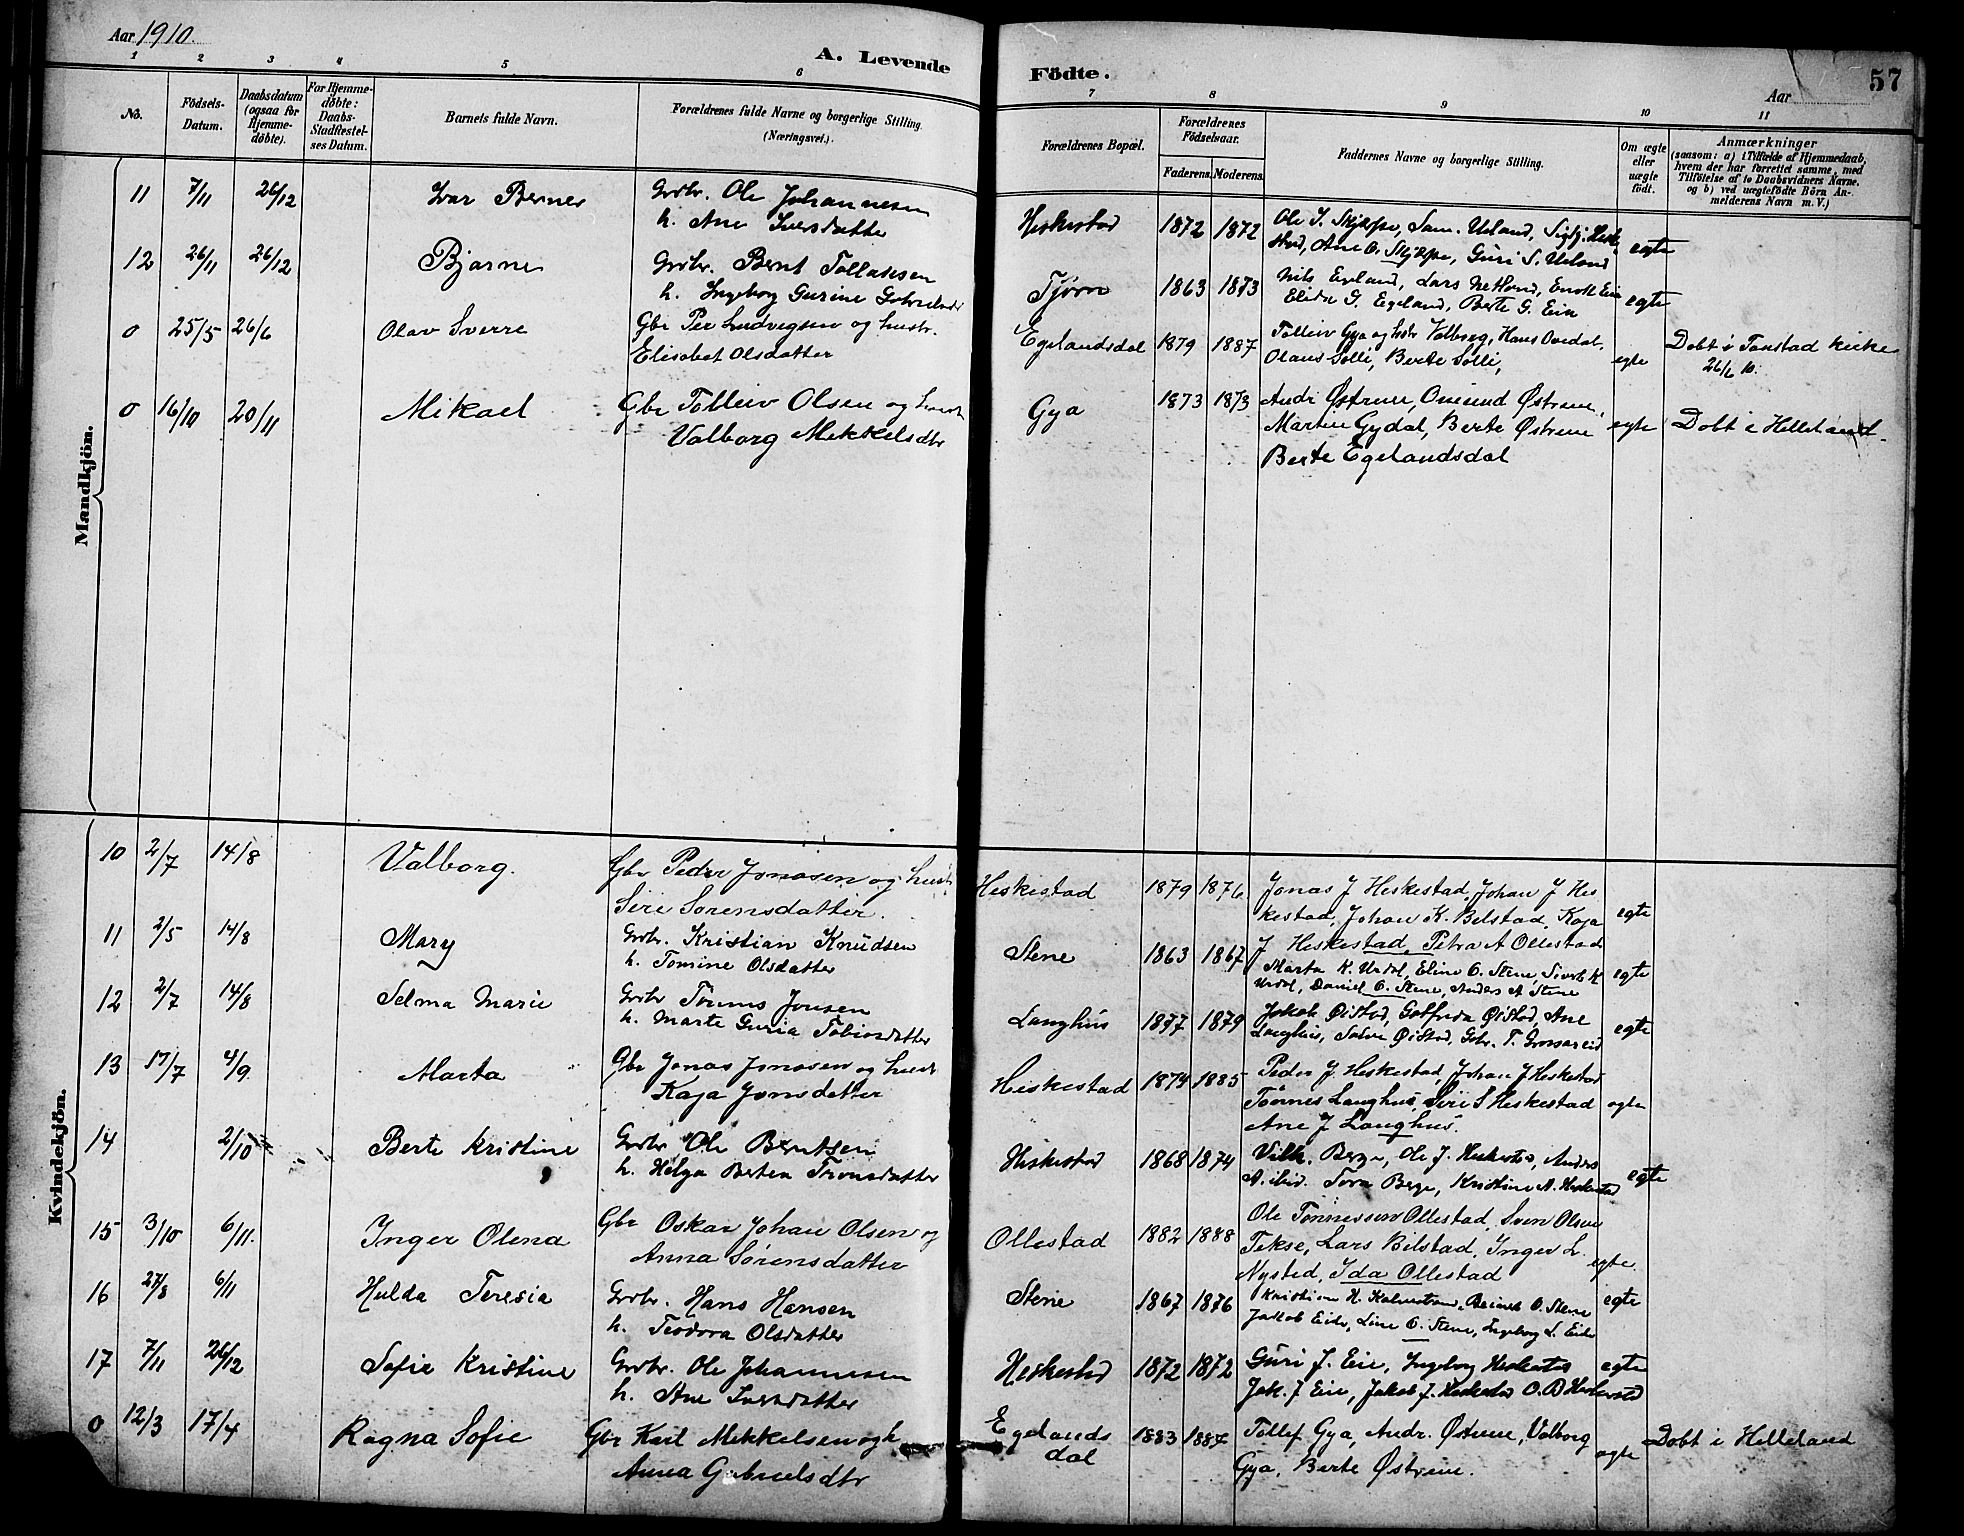 Aar 1910.
A. Levende Födte.
Aar
57
1 2 3 4 5 6 7 8 9 10 11
No.
Födsels-Datum.
Daabsdatum (ogsaa for Hjemme-döbte).
For Hjemme-döbte: Daabs-Stadfæstel-ses Datum.
Barnets fulde Navn.
Forældrenes fulde Navne og borgerlige Stilling. (Næringsvei).
Forældrenes Bopæl.
Forældrenes Födselsaar.
Faderens. Moderens.
Faddernes Navne og borgerlige Stilling.
Om ægte eller uægte födt.
Anmærkninger
(saasom: a) i Tilfælde af Hjemmedaab,
hvem der har forrettet samme, med
Tilföielse af to Daabsvidners Navne.
og b) ved uægtefödte Börn An-
melderens Navn m. V.)
Mandkjön.
11 7/11 26/12 Ivar Berner Grdbr. Ole Johannesen
h. Ane Iversdatter
Heskestad 1872 1872 Ole S. Skjerpe, Sam. Ueland, Sigbj. Heske
stad, Ane O. Skjerpe, Guri S. Ueland egte
12 26/11 26/12 Bjarne Grdbr. Bernt Tollaksen
h. Ingeborg Gurine
Tjörn 1863 1873 Nils Egeland, Lars Netland, Enok Eie
Elida G. Egeland, Berte G. Eie egte
0 25/5 26/6 Olav Sverre Gbr Per Ludvigsen og hustr.
Elisabet Olsdatter
Egelandsdal 1879 1887 Tolleiv Gya og hstr Valborg, Hans Ovedal,
Olaus Solli, Berte Solli, egte Döbt i Tonstad kirke
26/6 10.
0 16/10 20/11 Mikael Gbr Tolleiv Olsen og hustr
Valborg Mikkelsdtr
Gya 1873 1873 Andr Østrem, Omund Østrem,
Martin Gydal, Berte Østrem egte Döbt i Helleland.
Berte Egelandsdal
Kvindekjön.
10 2/7 14/8 Valborg. Gbr Peder Jonasen og hustr
Siri Sørensdatter.
Heskestad 1879 1876 Jonas J Heskestad, Johan J Hes
kestad, Johan K. Bilstad, Kaja egte
J Heskestad, Petra A Ollestad
11 2/5 14/8 Mary Grdbr. Kristian Knudsen
h. Tomine Olsdatter
Stene 1863 1867 Marta K. Urdal, Eline O. Stene, Sivert K
Urdal, Daniel O. Stene, Anders A Stene egte
12 2/7 14/8 Selma Marie Grdbr Tönnes Jonsen
h. Marte Guria Tobiasdatter
Langhus 1877 1879 Jakob Øistad, Gotfrida Øistad, Ane
Langhus, Salve Øistad, Gabr. T. Grøssareid egte
13 17/7 4/9 Marta Gbr Jonas Jonasen og hustr
Kaja Jonsdatter
Heskestad 1874 1885 Peder J. Heskestad, Johan J Heskestad
Tönnes Langhus, Siri S Heskestad egte
Ane J Langhus.
14 2/10 Berte Kristine Grdbr. Ole Berntsen
h. Helga Bertea Tronsdatter
Heskestad 1868 1874 Vilh. Berge, Ole J. Heskestad, Anders
A. ibid. Tora Berge, Kristine A. Heskestad egte
15 3/10 6/11. Inger Olena Gbr Oskar Johan Olsen og
Anna Sørensdatter
Ollestad 1882 1888 Ole Tønnessen Ollestad, Sven Olsen
Tekse, Lars Bilstad, Inger L.
Nysted, Ida Ollestad egte.
16 27/8 6/11 Hulda Teresia Grdbr. Hans Hansen
h. Teodora Olsdatter
Stene 1867 1876 Kristian H. O. Stene
Jakob Eide, Line O. Stene, Ingeborg L. Eide egte
17 7/11 26/12 Sofie Kristine Grdbr. Ole Johannesen
h. Ane Iversdatter
Heskestad 1872 1872 Guri J. Eie, Ingeborg Heskestad
Jak. J Eie, Jakob J. Heskestad O. B Heskestad egte
0 12/3 17/4 Ragna Sofie Gbr Karl Mikkelsen og h
Anna Gabrielsdtr
Egelands
dal 1883 1887 Tollef Gya, Andr. Østrem, Valborg
Gya, Berte Østrem. egte Döbt i Helleland